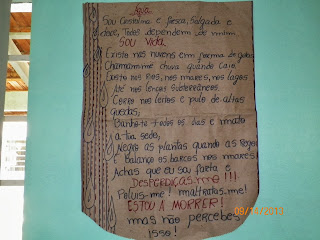 Água
Sou Cristalina e fresca, Salgada e
doce, Todos dependem de mim.
SOU VIDA.
Existo nas nuvens em forma de gotas
Chamam-me chuva quando caio.
Existo nos rios, nos mares, nos lagos
Até nos lençois subterrâneos.
Corro nos leitos e pulo de altas
quedas,
Banho-te todos os dias e mato
a tua sede,
Negro as plantas quando as Regas
E balanço os barcos nos mares!
Achas que eu sou farta e
DESPERDIÇAS-me!!!
Poluis-me! maltratas-me!
ESTOU A MORRER!
mas não percebes
isso!
09/14/2013